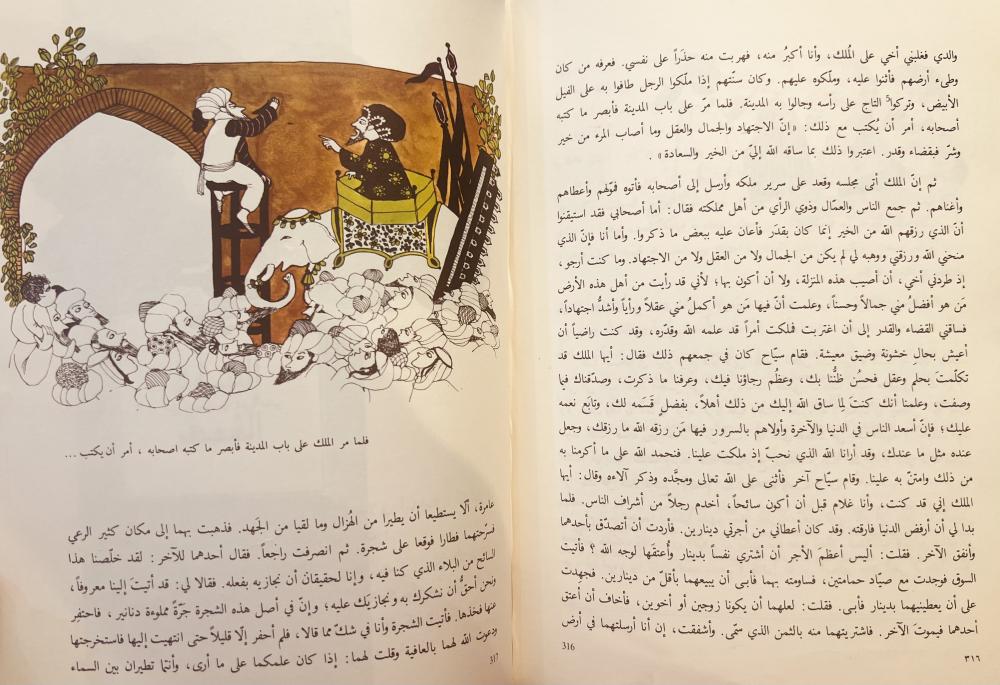 والذي فغلبني أخي على المُلك، وأنا أكبرُ منه، فهربت منه حذَراً على نفسي. فعرفه من كان
وطىء أرضهم فأثنوا عليه، وملّكوه عليهم. وكان سنّتهم إذا ملّكوا الرجل طافوا به على الفيل
الأبيض، وتركوا التاج على رأسه وجالوا به المدينة. فلما مرّ على باب المدينة فأبصر ما كتبه
أصحابه، أمر أن يُكتب مع ذلك: «إنّ الاجتهاد والجمال والعقل وما أصاب المرءَ من خير
وشرّ فبقضاء وقدر. اعتبروا ذلك بما ساقه الله إليّ من الخير والسعادة» .
ثم إنّ الملك أتى مجلسه وقعد على سرير ملكه وأرسل إلى أصحابه فأتوه فموّلهم وأعطاهم
وأغناهم. ثم جمع الناس والعمّال وذوي الرأي من أهل مملكته فقال: أما أصحابي فقد استيقنوا
أنّ الذي رزقهم الله من الخير إنما كان بقدَر فأعان عليه ببعض ما ذكروا. وأما أنا فإنّ الذي
منحني الله ورزقني ووهبه لي لم يكن من الجمال ولا من العقل ولا من الاجتهاد. وما كنت أرجو،
إذ طردني أخي، أن أصيب هذه المنزلة، ولا أن أكون بها؛ لأني قد رأيت من أهل هذه الأرض
مَن هو أفضلُ مني جمالاً وحسناً، وعلمت أنّ فيها مَن هو أكملُ مني عقلاً ورأياً وأشدُّ اجتهاداً،
فساقني القضاء والقدر إلى أن اغتربت فملكت أمراً قد علمه الله وقدّره، وقد كنت راضياً أن
أعيش بحالِ خشونة وضيق معيشة. فقام سيّاح كان في جمعهم ذلك فقال: أيها الملك قد
تكلّمتَ بحلم وعقل فحسُن ظنُّنا بك، وعظُم رجاؤنا فيك، وعرفنا ما ذكرت، وصدّقناك فيما
وصفت، وعلمنا أنك كنتَ لِما ساق الله إليك من ذلك أهلاً، بفضلٍ قَسَمه لك، وتابَع نعمه
عليك؛ فإنّ أسعد الناس في الدنيا والآخرة وأولاهم بالسرور فيها مَن رزقه الله ما رزقك، وجعل
عنده مثل ما عندك، وقد أرانا الله الذي نحبّ إذ ملكت علينا. فنحمد الله على ما أكرمنا به
من ذلك وامتنّ به علينا. وقام سيّاح آخر فأثنى على الله تعالى ومجّده وذكر آلاءه وقال: أيها
الملك إني قد كنت، وأنا غلام قبل أن أكون سائحاً، أخدم رجلاً من أشراف الناس. فلما
بدا لي أن أرفض الدنيا فارقته. وقد كان أعطاني من أجرتي دينارين. فأردت أن أتصدّق بأحدهما
وأنفق الآخر. فقلت: أليس أعظمَ الأجر أن أشتري نفساً بدينار وأُعتقَها لوجه الله ؟ فأتيت
السوق فوجدت مع صيّاد حمامتين، فساومته بهما فأبى أن يبيعهما بأقلّ من دينارين. فجهدت
على أن يعطينيهما بدينار فأبى. فقلت: لعلهما أن يكونا زوجين أو أخوين، فأخاف أن أُعتق
أحدهما فيموتَ الآخر. فاشتريتهما منه بالثمن الذي سمّى. وأشفقت، إن أنا أرسلتهما في أرض
316
٣١٦
فلما مر الملك على باب المدينة فأبصر ما كتبه اصحابه ، أمر أن يكتب ...
عامرة، ألّا يستطيعا أن يطيرا من الهُزال وما لقيا من الجَهد. فذهبت بهما إلى مكان كثير الرعي
فسرّحتهما فطارا فوقعا على شجرة. ثم انصرفت راجعاً. فقال أحدهما للآخر: لقد خلّصنا هذا
السائح من البلاء الذي كنا فيه، وإنا لحقيقان أن نجازيه بفعله. فقالا لي: قد أتيتَ إلينا معروفاً،
ونحن أحقُّ أن نشكرك به ونجازيَك عليه؛ وإنّ في أصل هذه الشجرة جَرّةً مملوءة دنانير ، فاحتفِر
عنها فخذها. فأتيت الشجرة وأنا في شكّ مما قالا، فلم أحفر إلّا قليلاً حتى انتهيت إليها فاستخرجتها
ودعوت الله لهما بالعافية وقلت لهما: إذا كان علمكما على ما أرى، وأنتما تطيران بين السماء
317